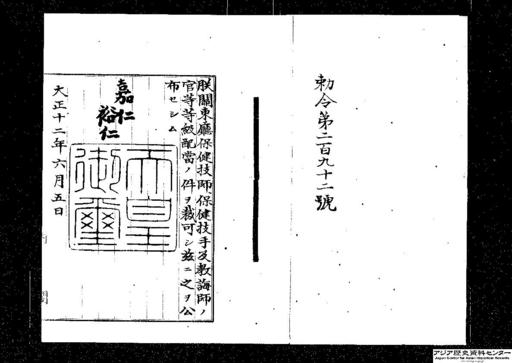 勅令第二百九十二號
朕關東廳保健技師保健技手及教誨師ノ
官等等級配當ノ件ヲ裁可シ茲ニ之ヲ公
布セシム
嘉仁
裕仁
天皇御璽
大正十二年六月五日
アジア歴史資料センター
Japan Center for Asian Historical Records